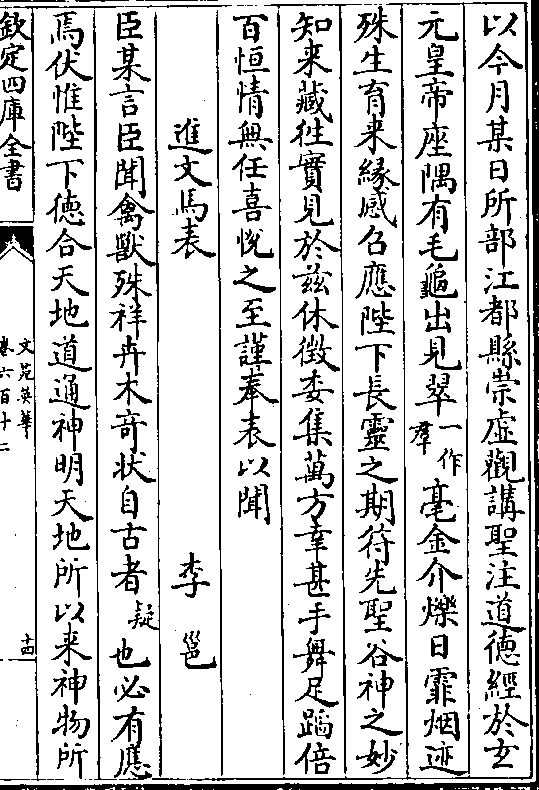 以今月某日所部江都縣崇虛觀講聖注道德經於玄
元皇帝座隅有毛龜出見翠一作羣毫金介爍日霏烟迹
殊生育来緣感召應陛下長靈之期符先聖谷神之妙
知来藏往實見於兹休徴委集萬方幸甚手舞足蹈倍
百恒情無任喜悅之至謹奉表以聞
進文馬表 李邕
臣某言臣聞禽獸殊祥卉木竒狀自古者疑也必有應
焉伏惟陛下徳合天地道通神明天地所以来神物所
欽定四庫全書
文苑英華
卷六百十二
十四